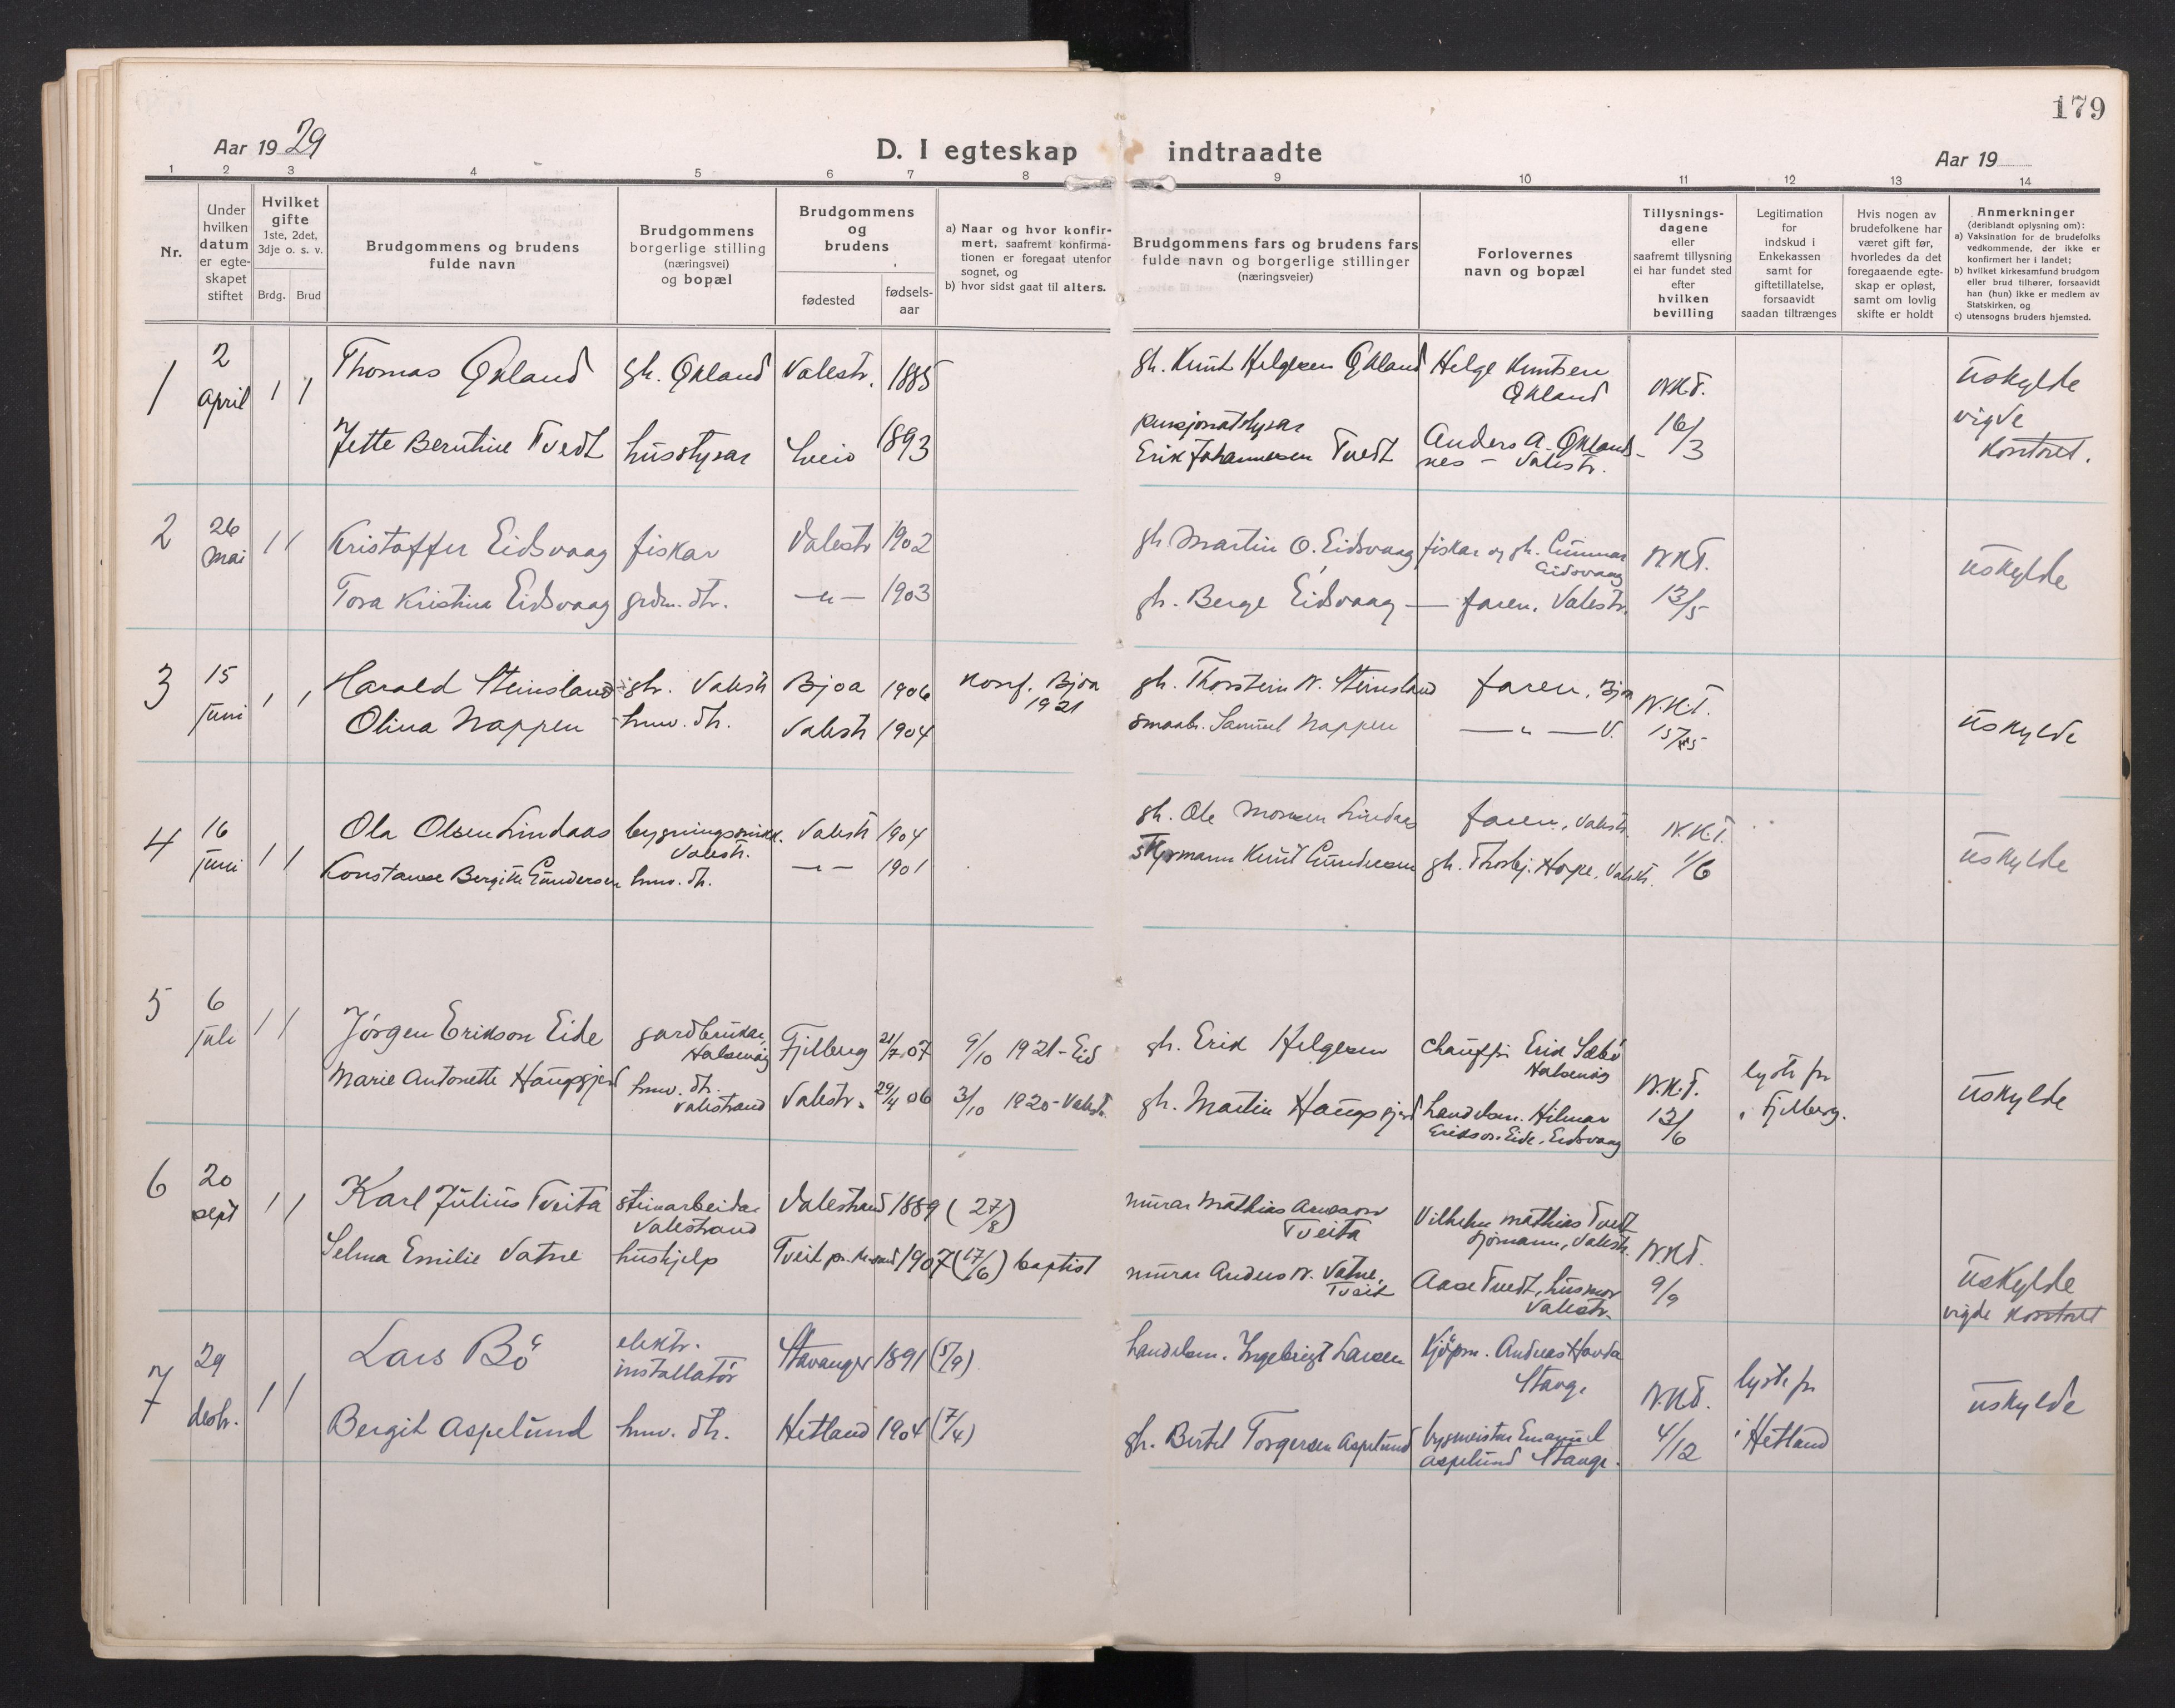 179
Aar 1929
D. I egteskap indtraadte
Aar 19
1 2 3 4 5 6 7 8 9 10 11 12 13 14
Nr.
Under
hvilken
datum
er egte-
skapet
stiftet
Hvilket
gifte
1ste, 2det,
3dje o. s. v.
Brdg. Brud
Brudgommens og brudens
fulde navn
Brudgommens
borgerlige stilling
(næringsvei)
og bopæl
Brudgommens
og
brudens
fødested
fødsels-
aar
a) Naar og hvor konfir-
mert, saafremt konfirma-
tionen er foregaat utenfor
sognet, og
b) hvor sidst gaat til alters.
Brudgommens fars og brudens fars
fulde navn og borgerlige stillinger
(næringsveier)
Forlovernes
navn og bopæl
Tillysnings-
dagene
eller
saafremt tillysning
ei har fundet sted
efter
hvilken
bevilling
Legitimation
for
indskud i
Enkekassen
samt for
giftetillatelse,
forsaavidt
saadan tiltrænges
Hvis nogen av
brudefolkene har
været gift før,
hvorledes da det
foregaaende egte-
skap er opløst,
samt om lovlig
skifte er holdt
Anmerkninger
(deriblandt oplysning om):
a) Vaksination for de brudefolks
vedkommende, der ikke er
konfirmert her i landet;
b) hvilket kirkesamfund brudgom
eller brud tilhører, forsaavidt
han (hun) ikke er medlem av
Statskirken, og
c) utensogns bruders hjemsted.
1
2
april
1 1
Thomas Økland gh. Økland Valestr. 1885
gh. Knut Helgesen Økland
Helge Knutsen
Økland
N.K.T.
16/3
uskylde
vigde
kontoret.
Jette Berntine Tvedt husstyrar Sveio 1893
pensjonatstyrar
Erik Johannesen Tvedt
Anders A. Øklands-
nes - Valestr.
2
26
mai
1 1
Kristoffer Eidsvaag fiskar Valestr 1902
gh. Martin O. Eidsvaag
fiskar og gh. Gunnar
Eidsvaag
N.K.T.
13/5
uskylde
Tora Kristina Eidsvaag grdm. dtr. -"- 1903
gh. Berge Eidsvaag - faren, Valestr.
3
15
juni
1 1
Harald Steinsland gh. Valestr Bjoa 1906
Konf. Bjoa
1921
gh. Thorstein N. Steinsland faren, Bjoa
N.K.T.
15/5
uskylde
Olina Nappen hmv. dtr. Valestr 1904
smaabr. Samuel Nappen -"- V.
4
16
juni
1 1
Ola Olsen Lindaas bygningssnikk.
Valestr.
Valestr 1904
gh. Ole Monsen Lindaas faren, Valestr.
N.K.T.
1/6
uskylde
Konstanse Bergitte Gundersen hmv. dtr. -"- 1901
styrmann Knut Gundersen gh. Thorbj. Hope, Valestr.
5
6
juli
1 1
Jörgen Erikson Eide gardbrukar,
Halsenøy
Fjelberg 21/7 07 9/10 1921 - Eid
gh. Erik Helgesen
Chauffør Erik Sæbö
Halsenøy
N.K.T.
13/6
lyste fr
i Fjelberg.
uskylde
Marie Antonette Haugsgjerd hmv. dtr.
Valestrand
Valestr. 29/4 06 3/10 1920 - Valestr.
gh. Martin Haugsgjerd
handelsm. Hilmar
Erikson Eide, Eidsvaag
6
20
sept
1 1
Karl Julius Tveita steinarbeidar
Valestrand
Valestrand 1889 (27/8)
murar Mathias Aresson
Tveita
Vilhelm Mathias Tvedt
sjømann, Valestr.
N.K.T.
9/9
uskylde
vigde kontoret
Selma Emilie Vatne hushjelp Tveit pr. Kr.sand 1907 (17/6) baptist
murar Anders N. Vatne,
Tveit
Aase Tvedt, husmor
Valestr.
7
29
desbr.
1 1
Lars Bö elektr.
installatör
Stavanger 1891 (5/9)
handelsm. Ingebrigt Larsen
Kjöpm. Andreas Havda
Stavgr
N.K.T.
4/12
lyste fr
i Hetland
uskylde
Bergit Aspelund hmv. dtr. Hetland 1904 (7/4)
gh. Bertel Torgersen Aspelund
bygmeister Emanuel
Aspelund Stavgr.